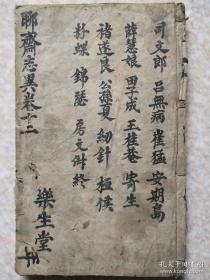 司文郎 呂無病 崔猛 安期島
薛慰娘 田子成 王桂菴 寄生
褚遂良 公孫夏 紉針 桓侯
粉蝶 錦瑟 房文淑 終
樂生堂
聊齋志異卷十二